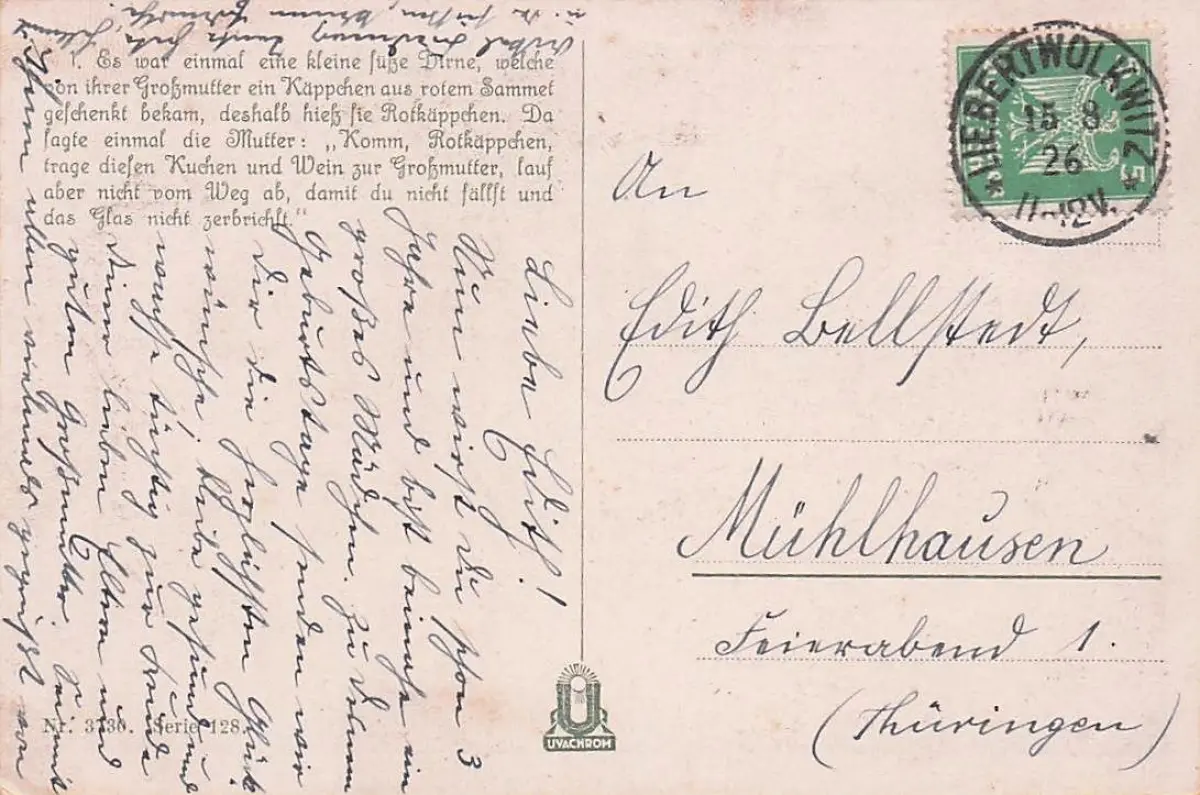 1. Es war einmal eine kleine süße Dirne, welche
von ihrer Großmutter ein Käppchen aus rotem Sammet
geschenkt bekam, deshalb hieß sie Rotkäppchen. Da
sagte einmal die Mutter: „Komm, Rotkäppchen,
trage diesen Kuchen und Wein zur Großmutter, lauf
aber nicht vom Weg ab, damit du nicht fällst und
das Glas nicht zerbrichst."
Liebe Edith!
Nun wirst Du schon 3
Jahre und bist beinahe ein
großes Mädchen. Zu Deinem
Geburtstage senden wir
Dir die herzlichsten Glück
wünsche! Bleibe gesund und
wachse tüchtig zur Freude
Deiner lieben Eltern und
guten Großmutter. Seid mit
Ihnen allen vielmals gegrüßt von
Nr. 3730. Serie 128.
UVACHROM
LIEBERTWOLKWITZ
15 8
26
11-12V.
5
An
Edith Bellstedt,
Mühlhausen
Feierabend 1.
(Thüringen)